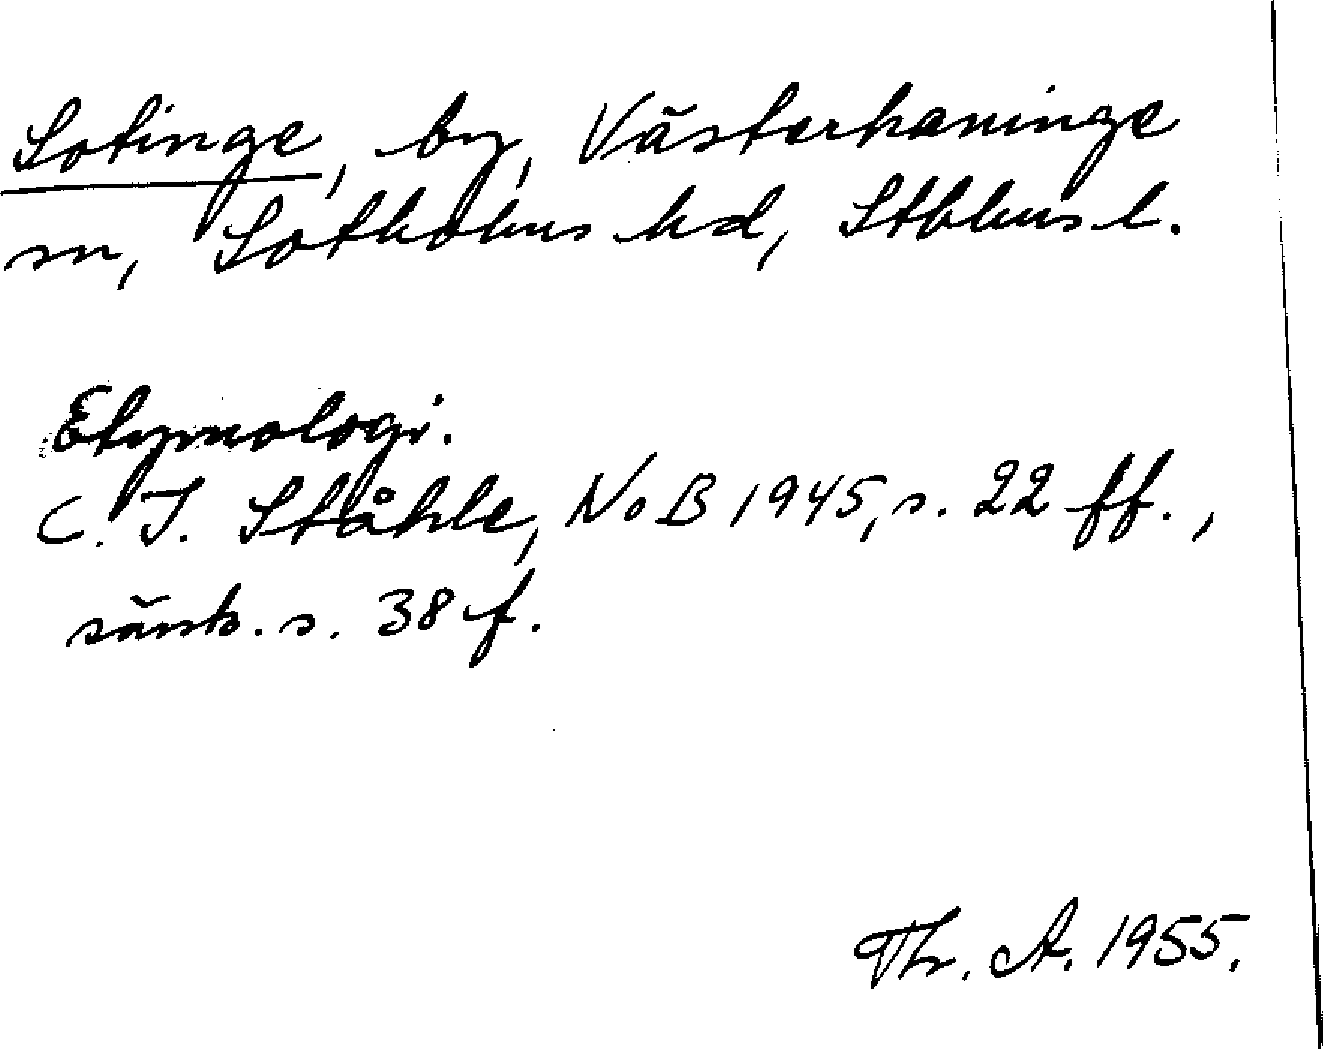 Sotinge, by, Västerhaninge
sn, Sotholms hd, Sthlms l.
Etymologi.
C. I. Ståhle, NoB 1945, s. 22 ff.,
särsk. s. 38 f.
Th. A. 1955.